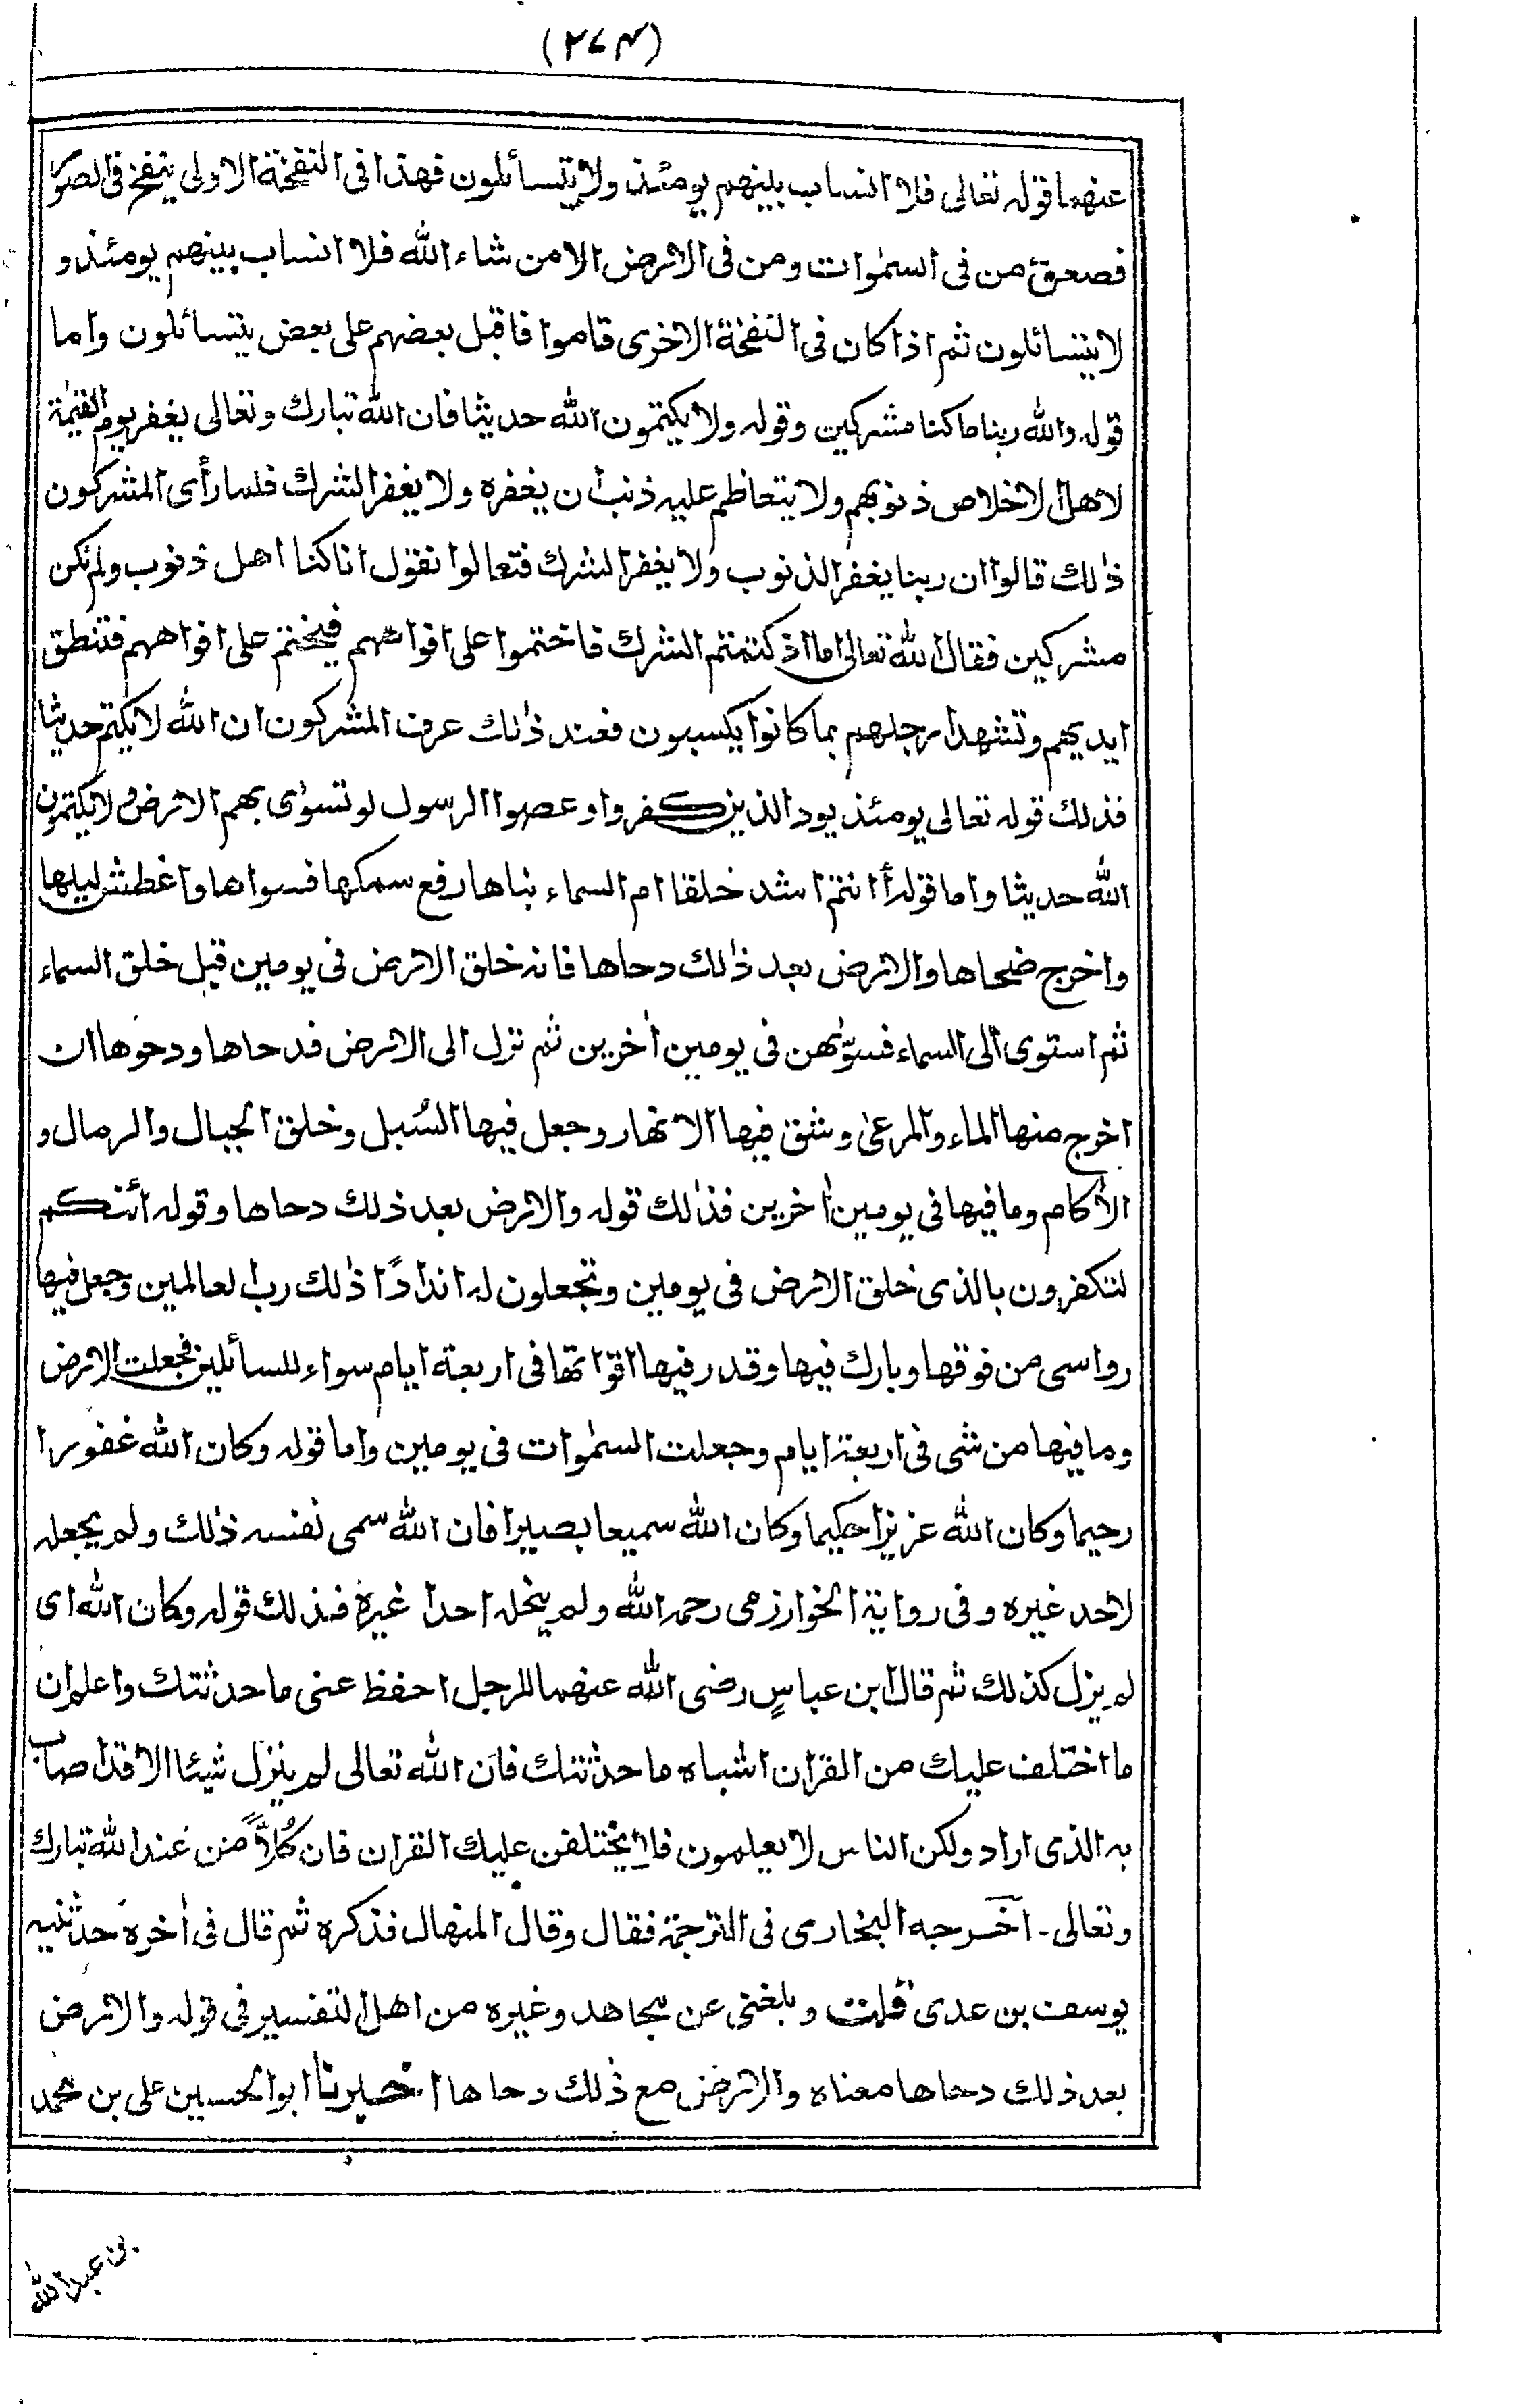 (۲۷۴)
عنهما قوله تعالى فلا انساب بينهم يومئذ ولا يتسائلون فهذا فى النفخة الاولى ينفخ فى الصور
فصعق من فى السمٰوات ومن فى الارض الا من شاء الله فلا انساب بينهم يومئذ و
لا يتسائلون ثم اذا كان فى النفخة الاخرى قاموا فاقبل بعضهم على بعض يتسائلون واما
قوله والله ربنا ما كنا مشركين وقوله ولا يكتمون الله حديثا فان الله تبارك وتعالى يغفر يوم القيٰمة
لاهل الاخلاص ذنوبهم ولا يتعاظم عليه ذنب أن يغفره ولا يغفر الشرك فلما رأى المشركون
ذٰلك قالوا ان ربنا يغفر الذنوب ولا يغفر الشرك فتعالوا نقول انا كنا اهل ذنوب ولم نكن
مشركين فقال الله تعالى اما اذ كتمتم الشرك فاختموا على افواههم فيختم على افواههم فتنطق
ايديهم وتشهد ارجلهم بما كانوا يكسبون فعند ذٰلك عرف المشركون ان الله لا يكتم حديثا
فذلك قوله تعالى يومئذ يود الذين كفروا وعصوا الرسول لو تسوٰى بهم الارض ولا يكتمون
الله حديثا واما قوله أانتم اشد خلقا ام السماء بناها رفع سمكها فسواها واغطش ليلها
واخرج ضحاها والارض بعد ذٰلك دحاها فانه خلق الارض فى يومين قبل خلق السماء
ثم استوى الى السماء فسوّٰهن فى يومين اٰخرين ثم نزل الى الارض فدحاها ودحوها ان
اخرج منها الماء والمرعىٰ وشق فيها الانهار وجعل فيها السُبل وخلق الجبال والرمال و
الأكام وما فيها فى يومين اٰخرين فذٰلك قوله والارض بعد ذلك دحاها وقوله أئنكم
لتكفرون بالذى خلق الارض فى يومين وتجعلون له اندادًا ذٰلك رب العالمين وجعل فيها
رواسى من فوقها وبارك فيها وقدر فيها اقواتها فى اربعة ايام سواء للسائلين فجعلت الارض
وما فيها من شى فى اربعة ايام وجعلت السمٰوات فى يومين واما قوله وكان الله غفورا
رحيما وكان الله عزيزا حكيما وكان الله سميعا بصيرا فان الله سمى نفسه ذٰلك ولم يجعله
لاحد غيره وفى رواية الخوارزمى رحمه الله ولم ينحله احدا غيرهٗ فذلك قوله وكان الله اى
لم يزل كذلك ثم قال ابن عباسٍ رضى الله عنهما للرجل احفظ عنى ما حدثتك واعلم ان
ما اختلف عليك من القراٰن اشباه ما حدثتك فان الله تعالى لم ينزل شيئا الا قد اصاب
به الذى اراد ولكن الناس لا يعلمون فلا يختلفن عليك القران فان كُلاًّ من عند الله تبارك
وتعالى - اخرجه البخارى فى الترجمة فقال وقال المنهال فذكره ثم قال فى اٰخره حدثنيه
يوسف بن عدى قلت وبلغنى عن مجاهد وغيره من اهل التفسير فى قوله والارض
بعد ذلك دحاها معناه والارض مع ذٰلك دحاها اخبرنا ابو الحسين على بن محمد
بن عبد الله